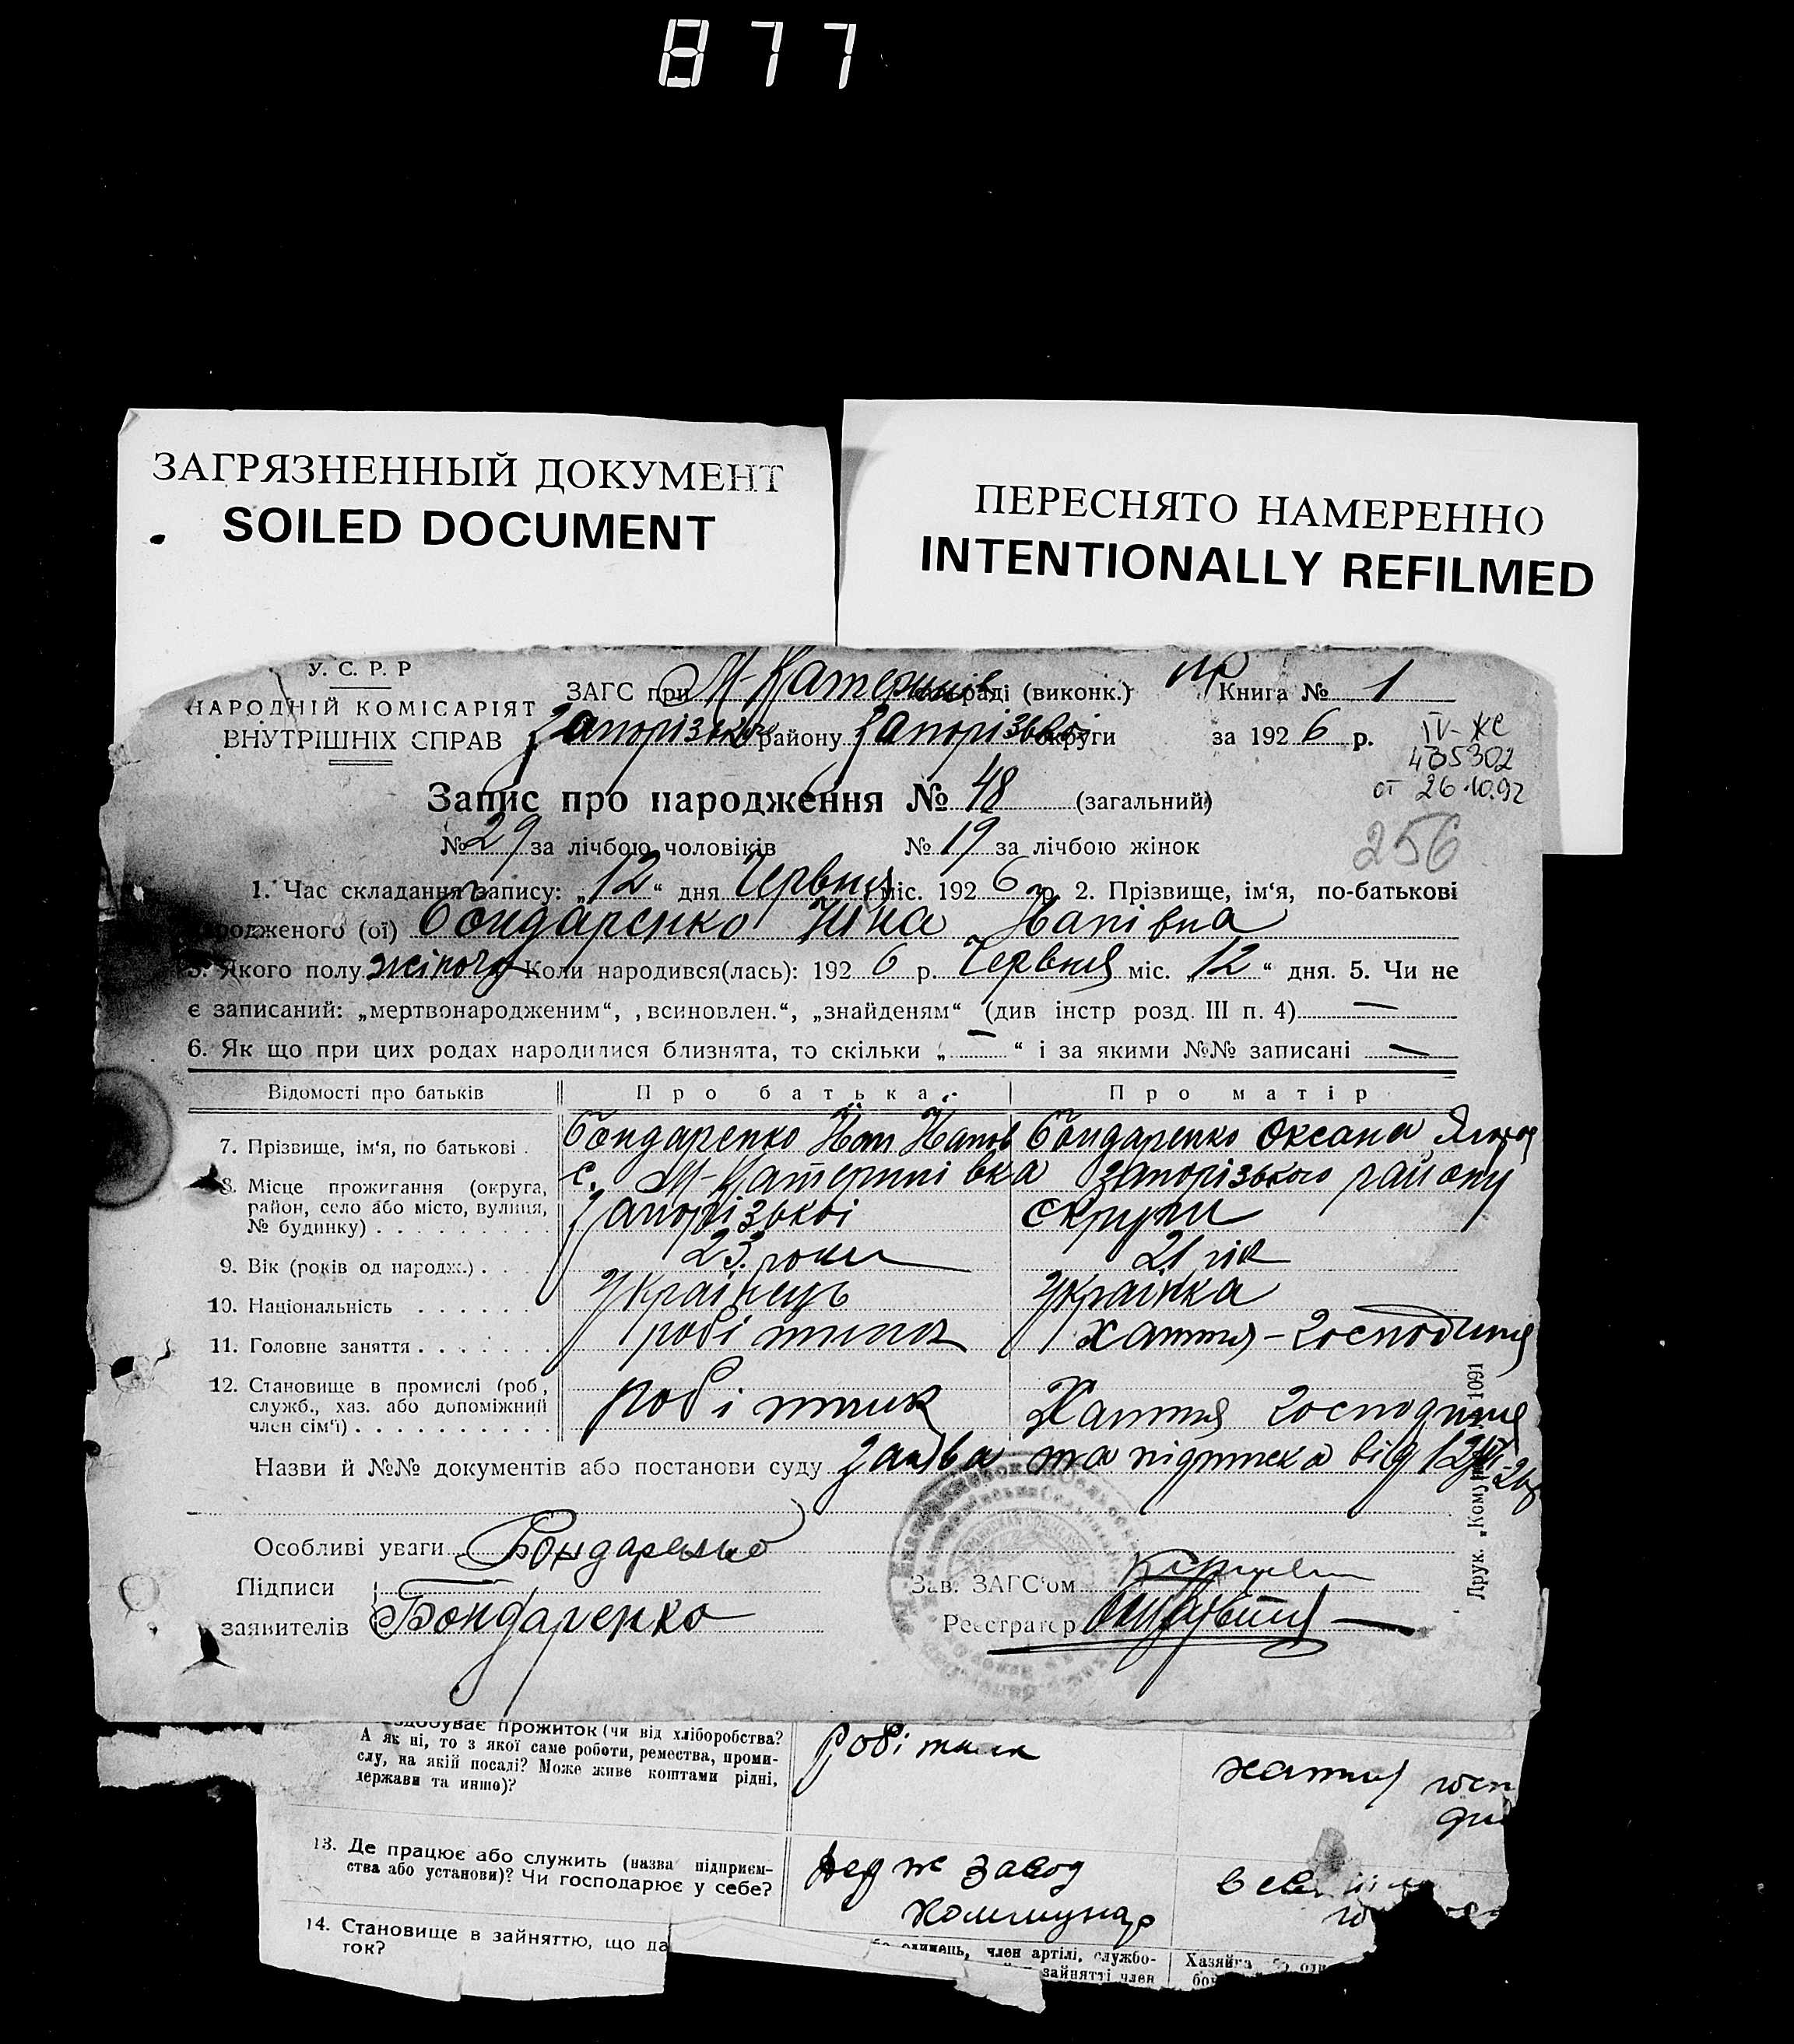 877
ЗАГРЯЗНЕННЫЙ ДОКУМЕНТ
SOILED DOCUMENT
ПЕРЕСНЯТО НАМЕРЕННО
INTENTIONALLY REFILMED
У. С. Р. Р
НАРОДНІЙ КОМІСАРІЯТ
ВНУТРІШНІХ СПРАВ
ЗАГС при М-Катеринів сільраді (виконк.) Книга № 1
Запорізьк району Запорізької округи за 1926 р.
IV-ЖС
405302
от 26.10.92
Запис про народження № 48 (загальний)
№ 29 за лічбою чоловіків № 19 за лічбою жінок
256
1. Час складання запису: „12“ дня Червня міс. 1926 р. 2. Прізвище, ім‘я, по-батькові
народженого (ої) Бондаренко Ніна Іванівна
3. Якого полу жіночу Коли народився(лась): 1926 р. Червня міс. „12“ дня. 5. Чи не
є записаний: „мертвонародженим“, „всиновлен.“, „знайденям“ (див інстр розд. III п. 4) —
6. Як що при цих родах народилися близнята, то скільки „—“ і за якими №№ записані —
Відомості про батьків Про батька Про матір
7. Прізвище, ім‘я, по батькові . Бондаренко Іван Іванов Бондаренко Оксана
8. Місце прожигання (округа, с. М-Катеринівка Запорізького району
район, село або місто, вулиця, Запорізької округи
№ будинку)
9. Вік (років од народж.) . . 23 роки 21 рік
10. Національність Українець Українка
11. Головне заняття робітник хатня-господиня
12. Становище в промислі (роб, робітник Хатня господиня
служб., хаз. або допоміжний
член сім‘ї)
Назви й №№ документів або постанови суду Заява та підписка від 12/VI-26р
Особливі уваги Бондаренко
Підписи
заявителів Бондаренко
Зав. ЗАГС‘ом
Реєстратор
Друк. „Кому 1091
здобуває прожиток (чи від хліборобства? робітник хатня госп
А як ні, то з якої саме роботи, ремества, проми- ди
слу, на якій посаді? Може живе коштами рідні,
держави та инше)?
13. Де працює або служить (назва підприєм- завод
ства або установи)? Чи господарює у себе? Коммунар
14. Становище в зайняттю, що да
ток?
одинець, член артілі, службо-
зайнятті член
Хазяйка